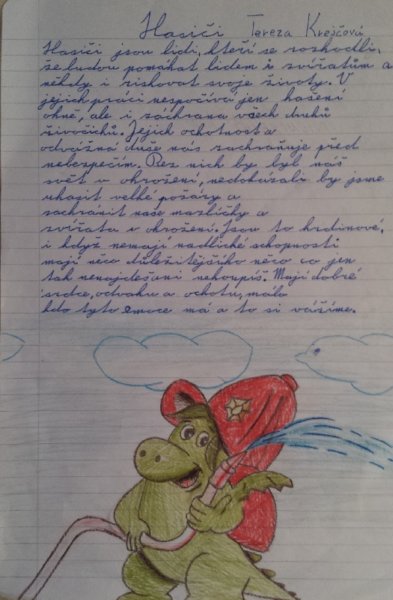 Hasiči Tereza Krejčová
Hasiči jsou lidi, kteří se rozhodli,
že budou pomáhat lidem i zvířatům a
někdy i riskovat svoje životy. V
jejich práci nespočívá jen hašení
ohně, ale i záchrana všech druhů
živočichů. Jejich ochotnost a
odvážná duše nás zachraňuje před
nebezpečím. Bez nich by byl náš
svět v ohrožení, nedokázali by jsme
uhasit velké požáry a
zachránit naše mazlíčky a
zvířata v ohrožení. Jsou to hrdinové,
i když nemají nadlické schopnosti
mají něco důležitějšího něco co jen
tak nenajdeš ani nekoupíš. Mají dobré
srdce, odvahu a ochotu, málo
kdo tyto emoce má a to si vážíme.